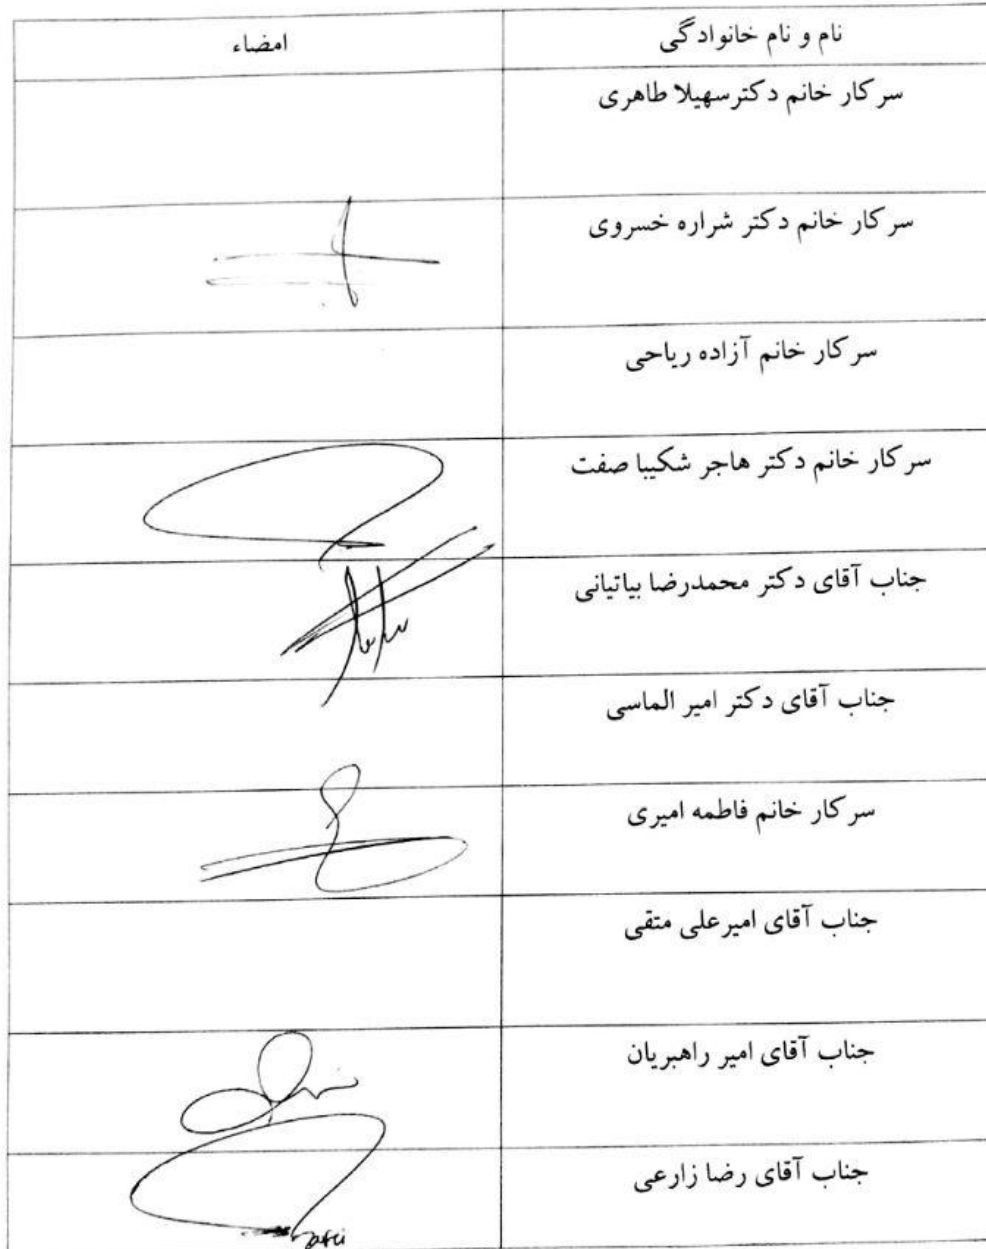 نام و نام خانوادگی امضاء
سرکار خانم دکترسهیلا طاهری
سرکار خانم دکتر شراره خسروی
سرکار خانم آزاده ریاحی
سرکار خانم دکتر هاجر شکیبا صفت
جناب آقای دکتر محمدرضا بیاتیانی
جناب آقای دکتر امیر الماسی
سرکار خانم فاطمه امیری
جناب آقای امیرعلی متقی
جناب آقای امیر راهبریان
جناب آقای رضا زارعی